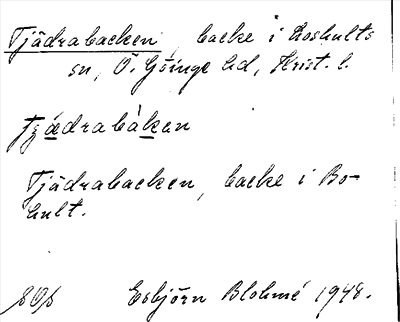 Tjädrabacken, backe i Loshults
sn, Ö. Göinge hd, Krist. l.
tjädrabàkan
Tjädrabacken, backe i Bo-
hult.
Esbjörn Blohmé 1948.